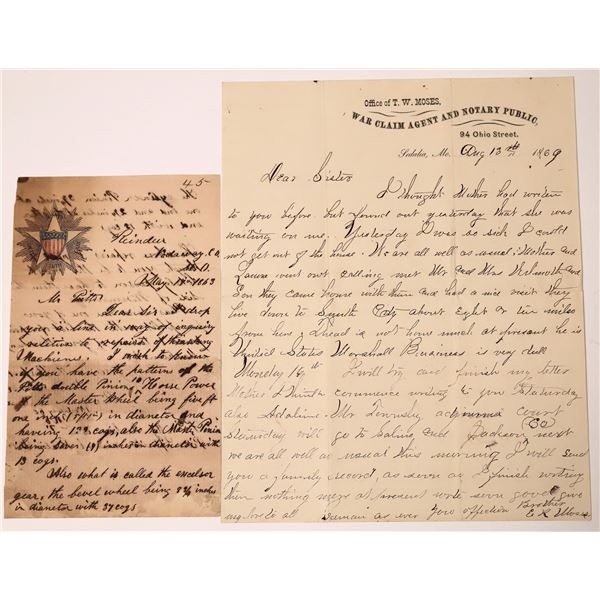 45
Nodaway, Co
Mo.
May 18 1863
Mr
Dear Sir I drop
you a line in way of inquiry
relative to repairs of thrashing
Machiene, I wish to know
if you have the patterns of the
Pitts double Pinion 10 Horse Power
the Master Wheel being five ft
one inch (5ft 1in) in diameter and
having 132 cogs, also the Master Pinion
being seven (7) inches in diameter with
13 cogs.
Also what is called the excelsor
gear, the bevel wheel being 8 3/4 inches
in diameter with 37 cogs
Office of T. W. MOSES,
WAR CLAIM AGENT AND NOTARY PUBLIC,
94 Ohio Street.
Sedalia, Mo. Aug 13th 1869
Dear Sister
I thought Mother had written
to you before but found out yesterday that she was
waiting on me. Yesterday I was so sick I could
not get out of the house. We are all well as usual; Mother and
Laura went out calling met Mr and Mrs
Son they came home with them and had a nice visit they
live down to Smith City about Eight or ten miles
from here is not home much at present he is
United States Marshall Business is very dull
Monday 16th I will try and finish my letter
Mother &amp; commence writing to you Saturday
also Adaline. Mr Townsley court
will go to Saline and Jackson Co next
we are all as usual this morning I will send
you a family record, as soon as I finish writing
then nothing more at present write soon give
my love to all remain as ever your affection Brother
E R Moses